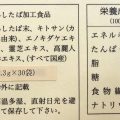 したば加工食品
したば末、キトサン(カ
由来)、エノキダケエキ
、霊芝エキス、高麗人
キス、(すべて国産)
.3g×30袋)
外に記載
温多湿、直射日光を避
て保存してください。
栄養成
(100
エネルギ
たんぱ
脂
糖
食物繊
ナトリ